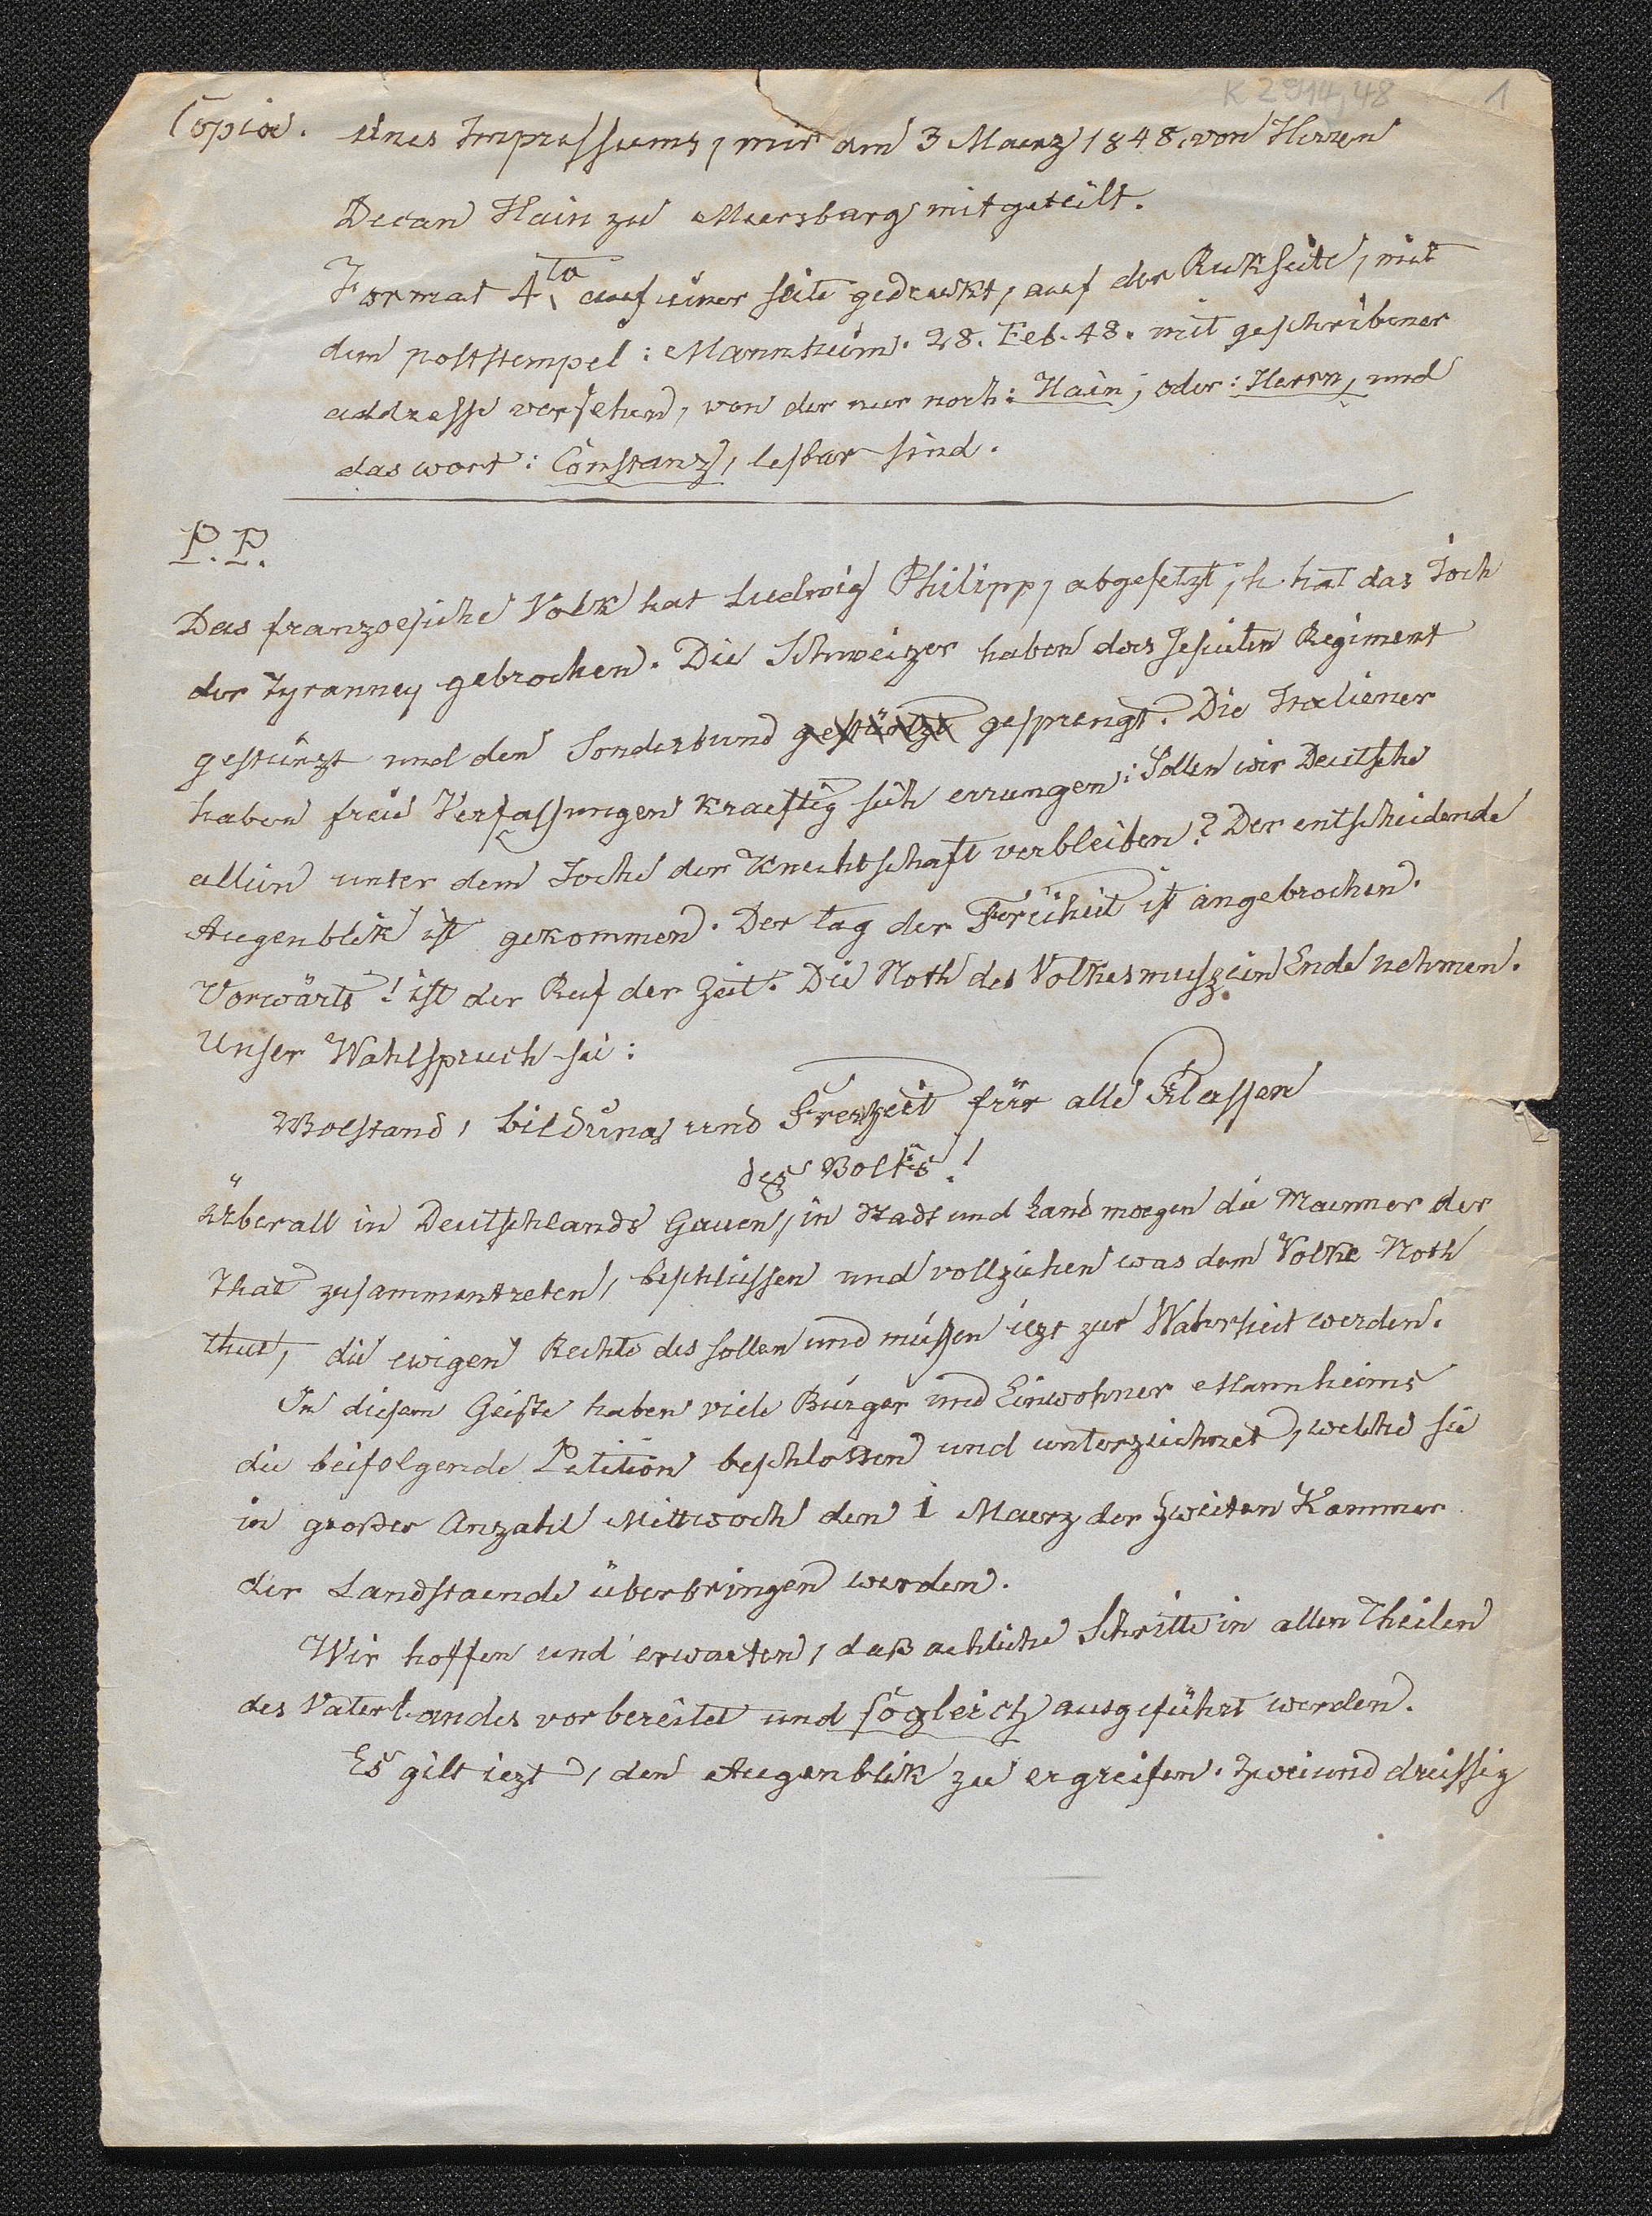 K 2914,48 1
Copia. eines Impressums, mir am 3 Maerz 1848, von Herren
Decan Hain zu Meersburg mitgeteilt.
Format 4to, auf einer seite gedruckt, auf der Rukseite, mit
dem poststempel: Mannheim. 28. Feb. 48. mit geschribener
addresse versehen, von der nur noch: Hain, oder: Herrn, und
das wort: Constanz, lesbar sind.
P. P.
Das franzoesiche Volk hat Ludwig Philipp, abgesetzt, h. hat das Joch
der Tyranney gebrochen. Die Schweizer haben das Jesuiten Regiment
gestürzt und den Sonderbund gestürzt gesprengt. Die Italiener
haben freie Verfassungen kraeftig sich errungen: Sollen wir Deutsche
allein unter dem Joche der Knechtschaft verbleiben? Der entscheidende
Augenblik ist gekommen. Der tag der Freiheit ist angebrochen.
Vorwärts! ist der Ruf der Zeit. Die Noth des Volkes musz ein Ende nehmen.
Unser Wahlspruch sei:
Wolstand, bildung und Freyheit für alle Klassen
des Volkes!
Überall in Deutschlands Gauen, in Stadt und Land moegen die Maenner der
That zusammentreten, beschliessen und vollziehen was dem Volke Noth
thut, die ewigen Rechte des sollen und müssen iezt zur Wahrheit werden.
In diesem Geiste haben viele Bürger und Einwohner Mannheims
die beifolgende Petition beschlossen und unterzeichnet, welche sie
in großer Anzahl Mittwoch den 1 Maerz der zweiten Kammer
der Landstaende überbringen werden.
Wir hoffen und erwarten, daß aehliche Schritte in allen Theilen
des Vaterlandes vorbereitet und sogleich ausgeführt werden.
Es gilt iezt, den Augenblik zu ergreifen. Zweiund dreissig